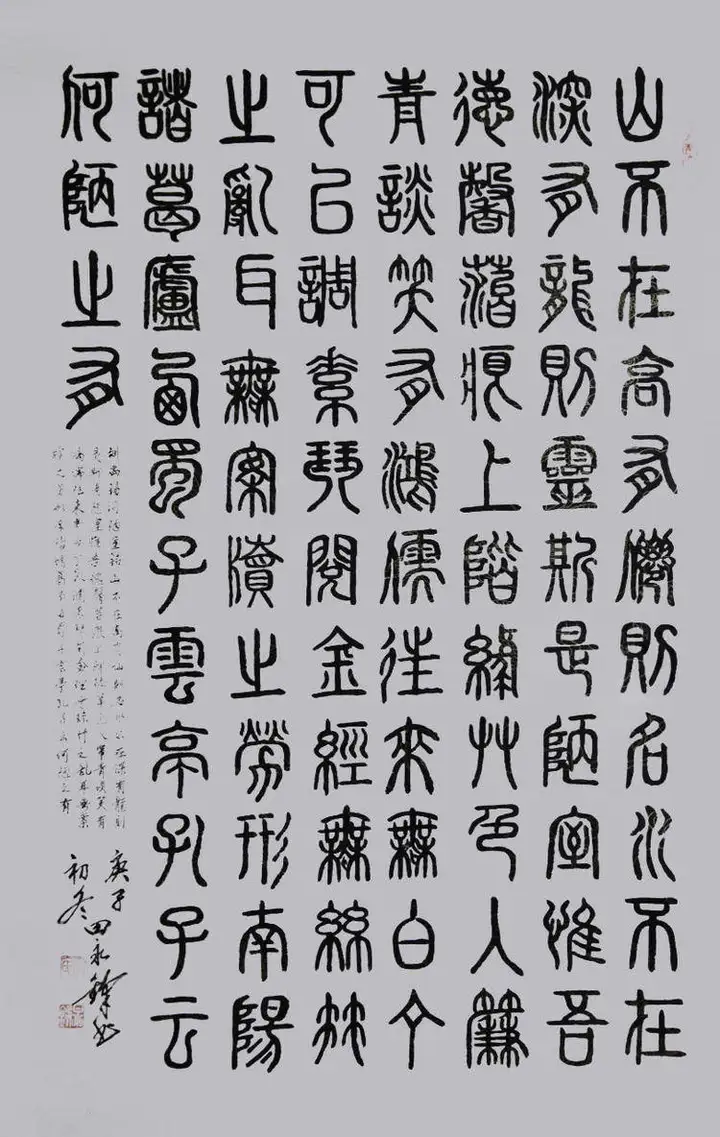 山不在高有僊則名水不在
深有龍則靈斯是陋室惟吾
德馨菭痕上階綠艸色入簾
青談笑有鴻儒往來無白丁
可以調素琴閱金經無絲竹
之亂耳無案牘之勞形南陽
諸葛廬西蜀子雲亭孔子云
何陋之有
庚子
初冬田永